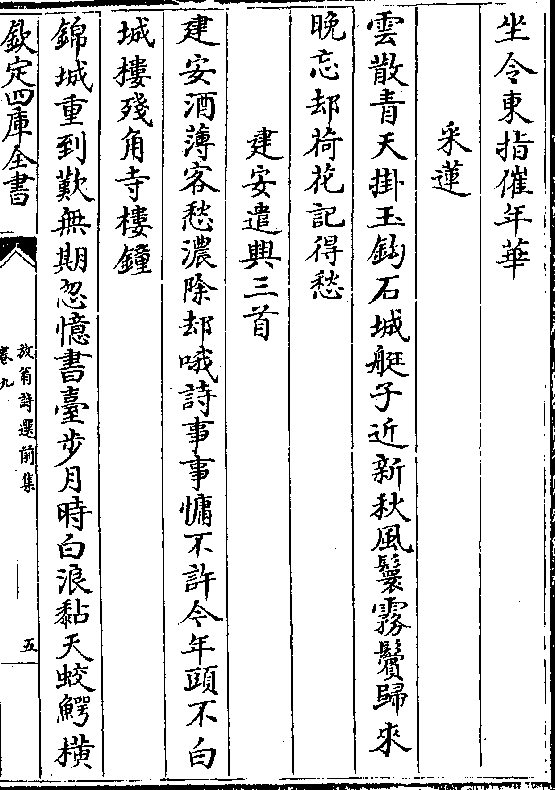 坐令東指催年華
采蓮
雲散青天掛玉鈎石城艇子近新秋風鬟霧鬢歸來
晚忘却荷花記得愁
建安遣興三首
建安酒薄客愁濃除却哦詩事事慵不許今年頭不白
城樓殘角寺樓鐘
錦城重到歎無期忽憶書臺步月時白浪黏天蛟鰐橫
欽定四庫全書
放翁詩選前集
卷九
五